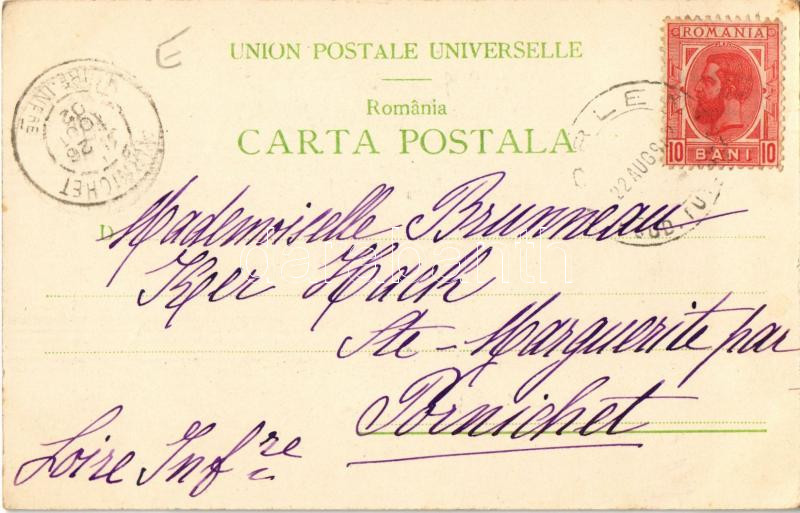 E
UNION POSTALE UNIVERSELLE
România
CARTA POSTALA
ROMANIA
10 BANI 10
22 AUG
JUD. TU
PORNICHET
LOIRE-INFRE
D
Mademoiselle Brunneau
Ker Hack
Ste-Marguerite par
Pornichet
Loire Infre